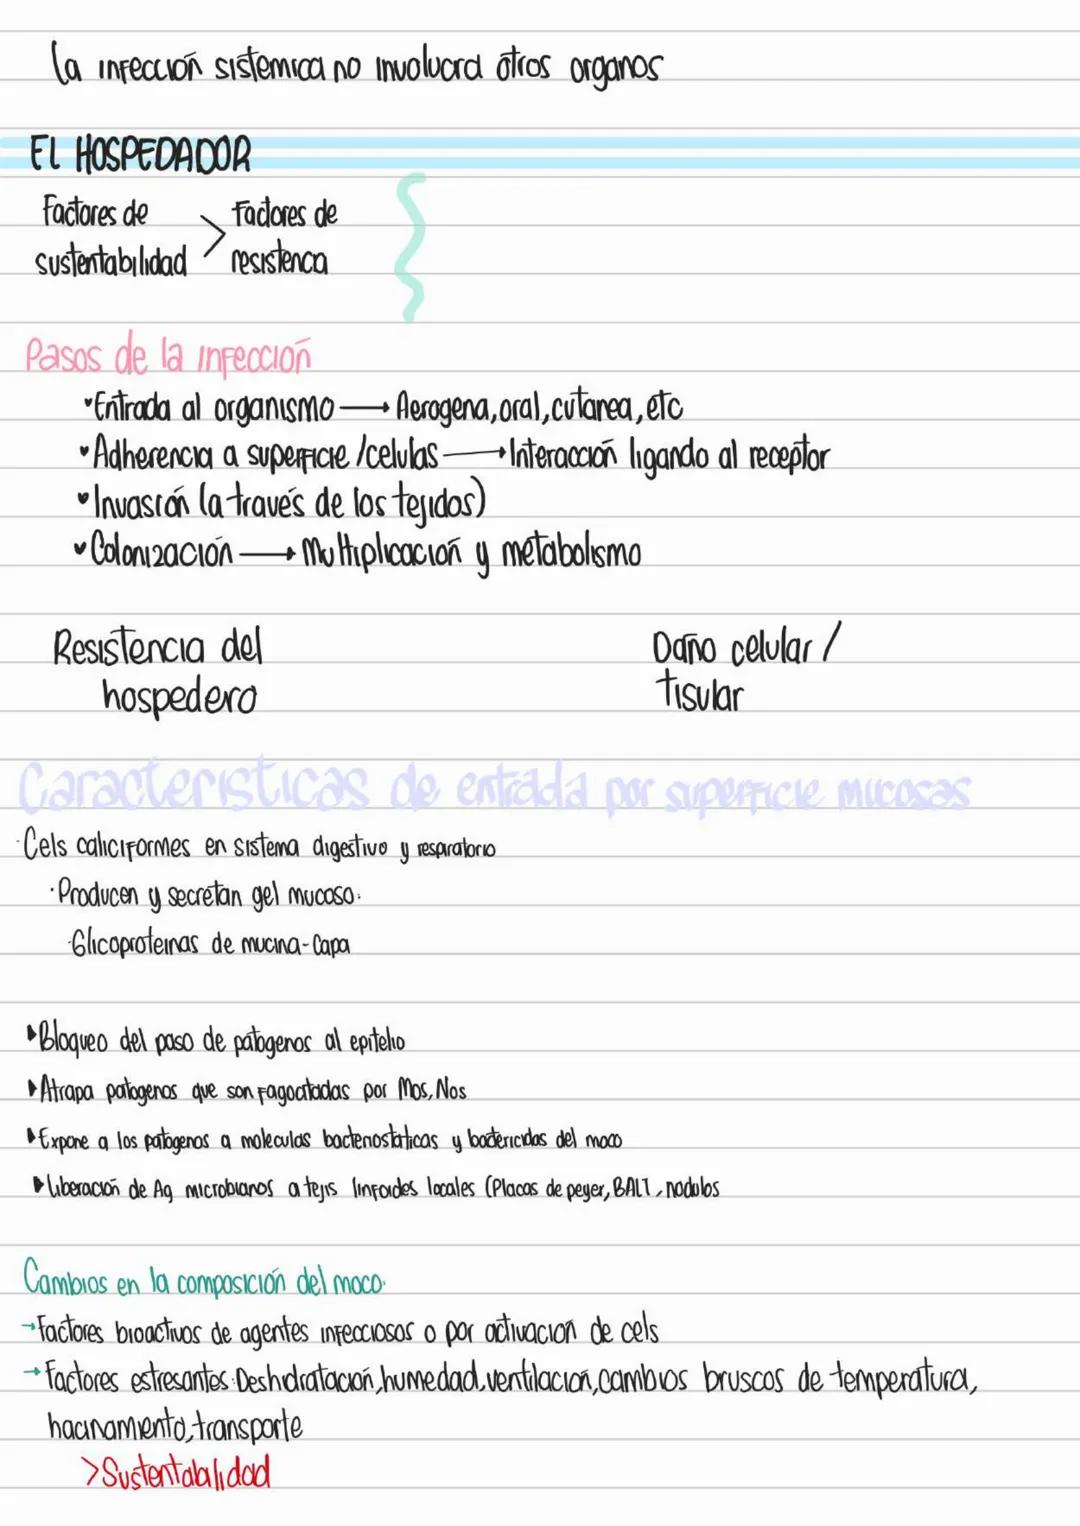 la infección sistemica no involucra otros organos
EL HOSPEDADOR
Factores de sustentabilidad > Factores de resistenca
Pasos de la infección
Entrada al organismo → Aerogena, oral, cutanea, etc
Adherencia a superficie / celulas → Interacción ligando al receptor
Invasión (a través de los tejidos)
Colonización → Multiplicación y metabolismo
Resistencia del hospedero
Daño celular / tisular
Caracteristicas de entrada por superficie mucosas
Cels caliciformes en sistema digestivo y respiratorio
Producen y secretan gel mucoso:
Glicoproteinas de mucina-Capa
Bloqueo del paso de patogenos al epitelio
Atrapa patogenos que son fagocitadas por Mos, Nos
Expone a los patogenos a moleculas bacteriostaticas y bactericidas del moco
Liberación de Ag microbianos a tejis linfoides locales (Placas de peyer, BALT, nodulos
Cambios en la composición del moco.
→ Factores bioactivos de agentes infecciosos o por activacion de cels
→ Factores estresantes: Deshidratación, humedad, ventilacion, cambios bruscos de temperatura,
hacinamiento, transporte
> Sustentabalidad